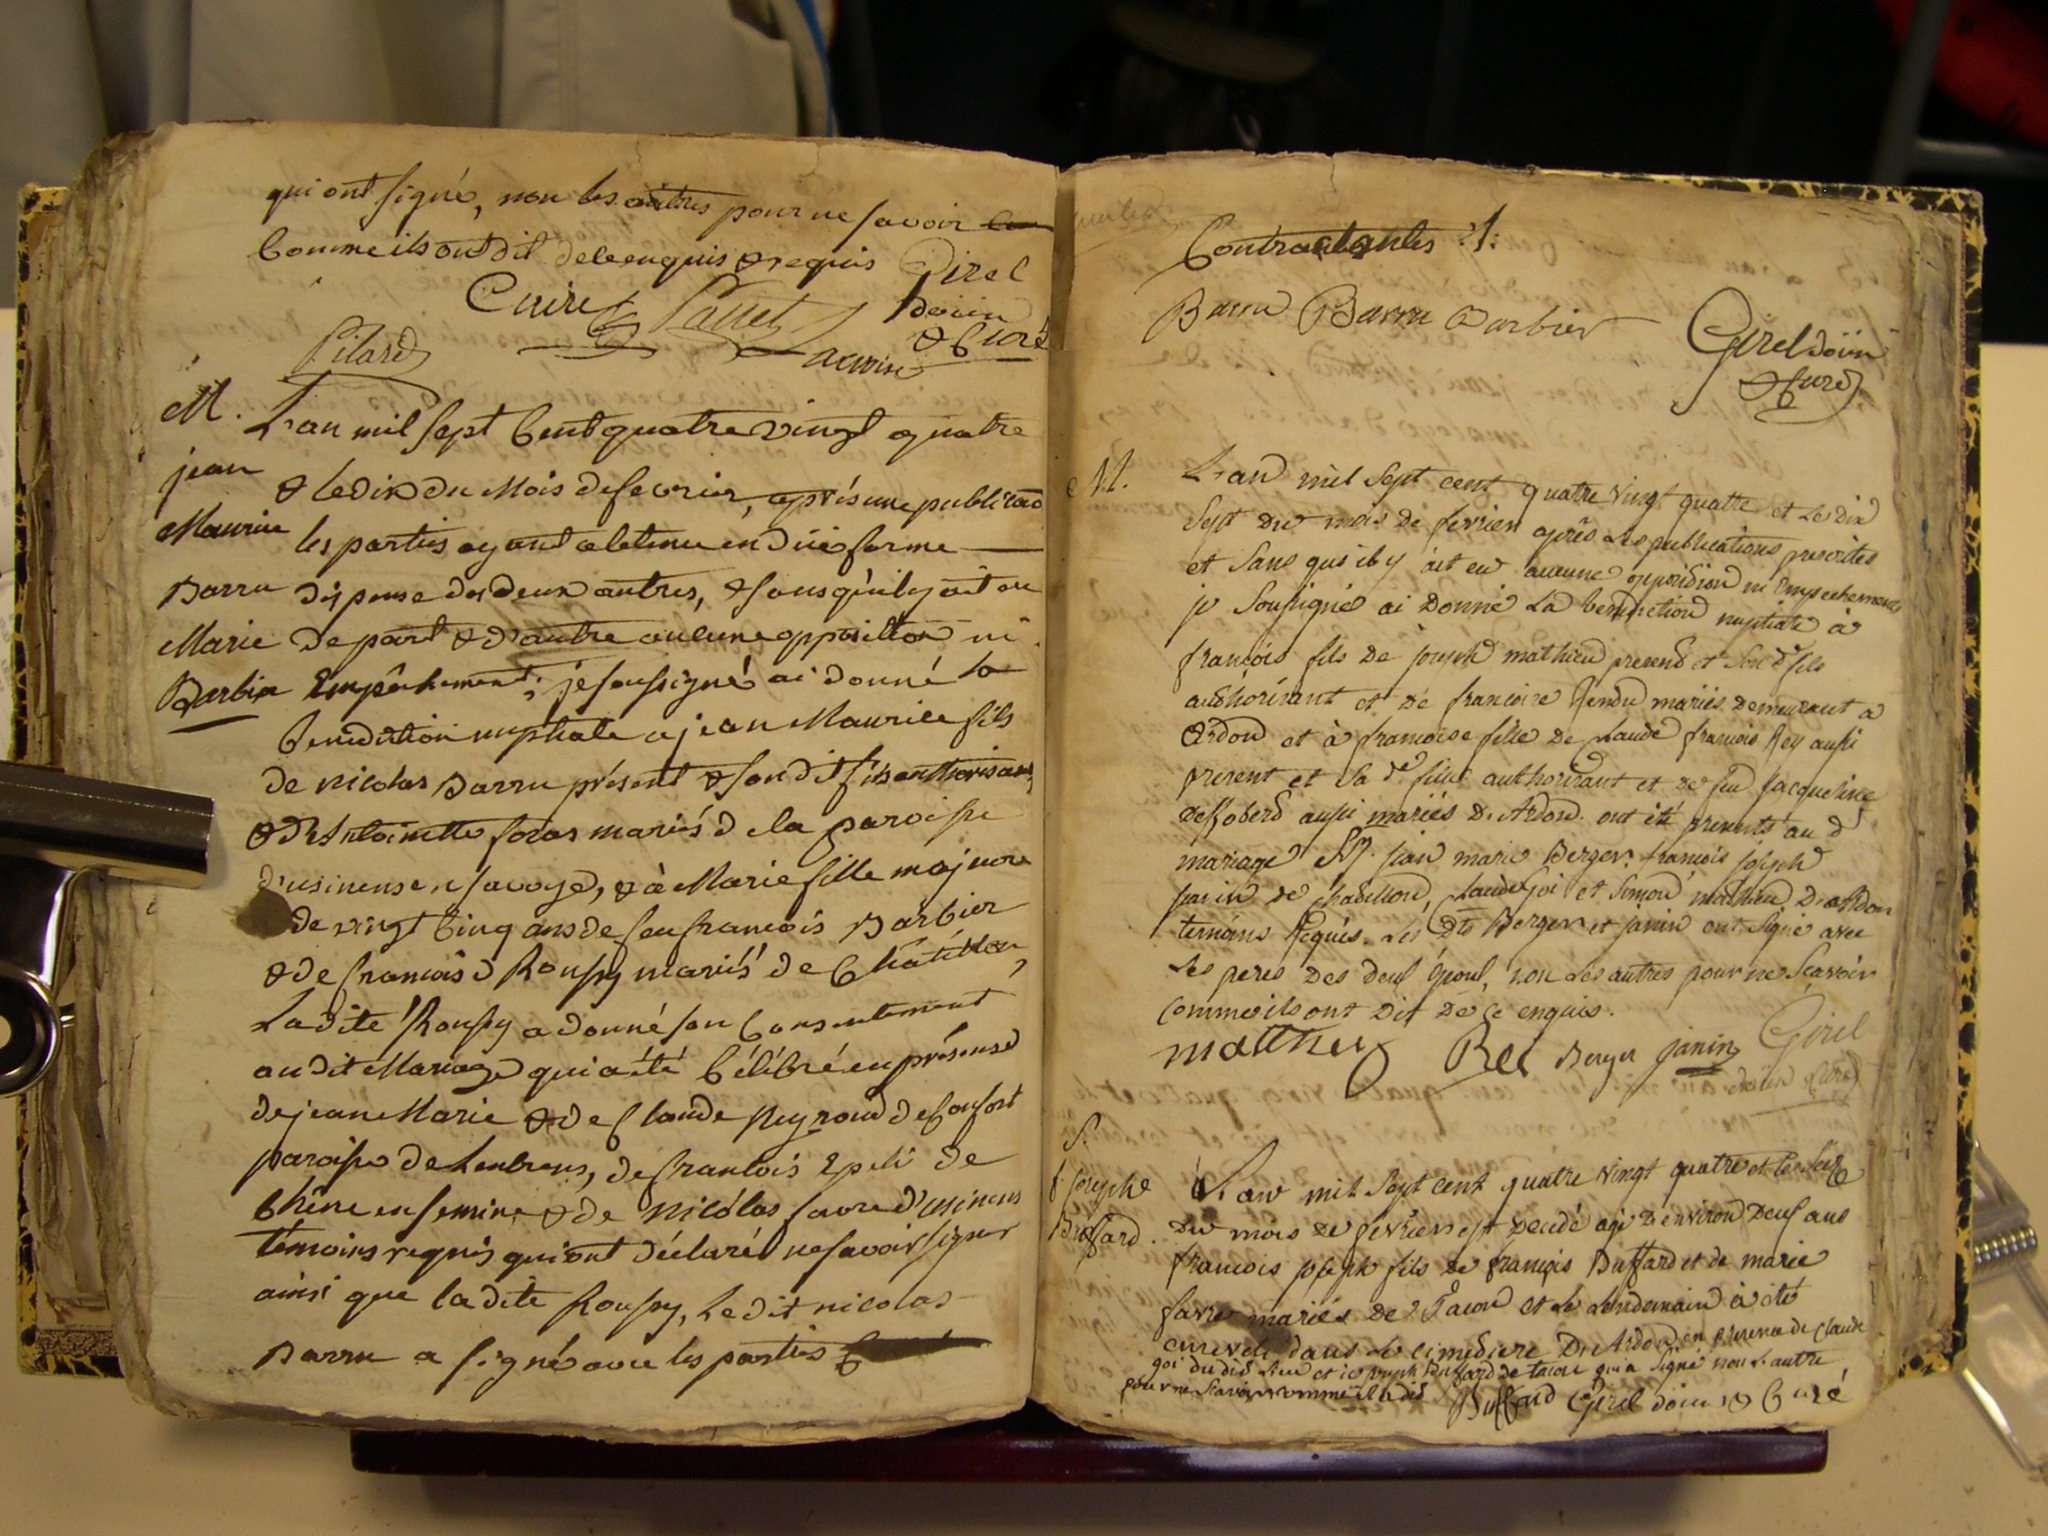 qui ont signé, non les autres pour ne savoir
comme ils ont dit de ce enquis & requis Girel
Cuire Pallet doien
Pilard & Curé
M. L'an mil sept Cent quatre vingt quatre
jean & le dix du Mois de fevrier, après une publication
Maurice les parties ayant obtenu en düe forme
Barru dispense des deux autres, & sans qu'il y ait eu
Marie de part & d'autre aucune opposition ni
Barbier Empêchement; je soussigné ai donné la
Benediction nuptiale a jean Maurice fils
de nicolas Barru présent & son dit fils authorisant
& d'Antoinette foras mariés de la paroisse
d'usinens en savoye, & à Marie fille majeure
de vingt Cinq ans de feu françois Barbier
& de françoise Roussy mariés de Châtillon,
Ladite Roussy a donné son Consentement
au dit Mariage qui a été Célébré en présense
de jean Marie & de Claude Peyroud de Confort
paroisse de Lentrens, de francois de
Chêne en semine & de nicolas favre d'usinens
témoins requis qui ont déclaré ne savoir signer
ainsi que ladite Roussy, Ledit nicolas
Barru a signé avec les parties
Contractantes ./.
Barru Barru Barbier Girel doïen
& Curé
M. L'an mil sept cent quatre vingt quatre et le dix
sept du mois de fevrier après les publications prescrites
et sans qu'il y ait eu aucune opposition ni Empechement
je soussigné ai donné la benediction nuptiale à
françois fils de joseph mathieu present et son d. fils
authorisant et de francoise Rendu mariés demeurant a
Ardon et à francoise fille de claude françois Rey aussi
present et sa de. fille authorisant et de feu jacqueline
aussi mariés d'Ardon. ont été presents au d
mariage jean marie Berger francois joseph
janin de chatillon, claude goi et simond mathieu d'Ardon
temoins Requis. Les dts Berger et janin ont signé avec
les peres des deux époux, non les autres pour ne scavoir
comme ils ont dit de ce enquis.
matthieu Rei Berger janin Girel
doien & Curé
S.
f. joseph L'an mil sept cent quatre vingt quatre et le seize
Buffard. du mois de fevrier est decedé agé d'environ deux ans
francois joseph fils de françois Buffard et de marie
favre mariés de Tacon et le lendemain à été
enseveli dans le cimetiere d'Ardon en presence de claude
goi dudit lieu et joseph Buffard de tacon qui a signé non l'autre
pour ne scavoir comme il a dit Buffard Girel doien & Curé